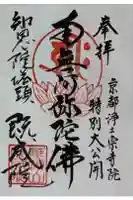 奉拝
京都浄土宗寺院
特別大公開
南無阿弥陀佛
知恩院塔頭